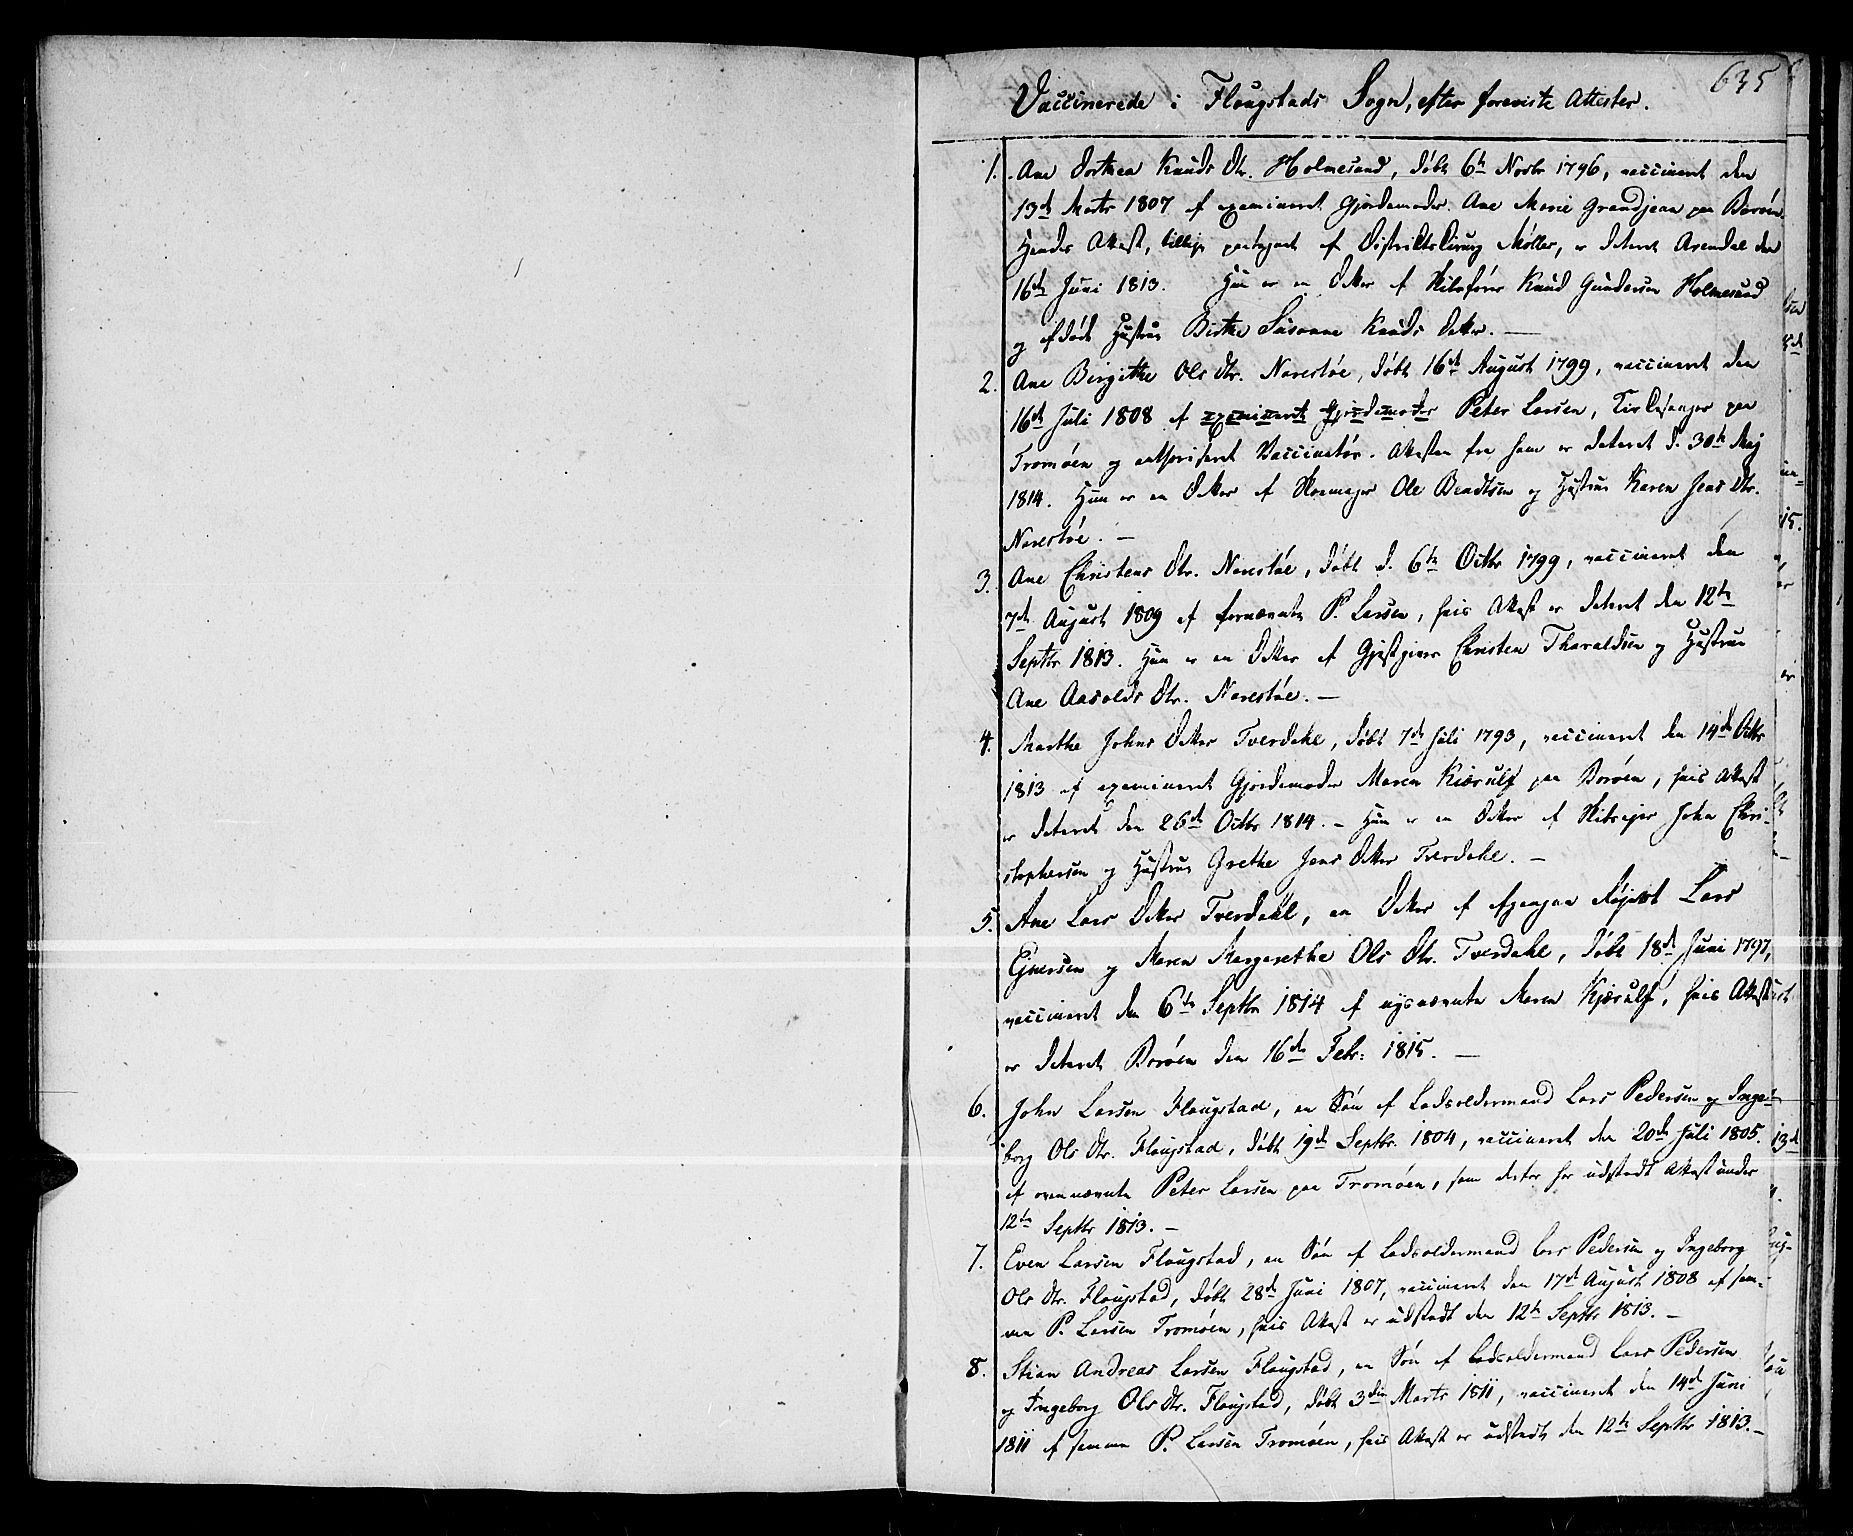 635
Vaccinerede i Flougstads Sogn, efter foreviste Attester.
1. Ane Dorthea Knuds Dtr. Holmesund, døbt 6te Novbr 1796, vaccineret den
13de Marts 1807 af examineret Gjordemoder Ane Marie Grandjean paa Borøen.
Hendes Attest, tillige paategnet af Distriktschirurg Møller, er dateret Arendal den
16de Juni 1813. Hun er en Datter af Skibsfører Knud Gundersen Holmesund
og afdøde Hustrue Birthe Susanne Knuds Datter. —
2. Ane Birgithe Ols Dtr. Narestøe, døbt 16de August 1799, vaccineret den
16de Juli 1808 af examineret Gjordemoder Peter Larsen, Kirkesanger paa
Tromøen og authoriseret Vaccinatør. Attesten fra ham er dateret d. 30te Maj
1814. Hun er en Datter af Skomager Ole Bendtsen og Hustrue Karen Jens Dtr.
Narestøe. —
3. Ane Christens Dtr. Narestøe, døbt d. 6te Octbr 1799, vaccineret den
7de August 1809 af fornævnte P. Larsen, hvis Attest er dateret den 12te
Septbr 1813. Hun er en Datter af Gjestgiver Christen Tharaldsen og Hustrue
Ane Aasolds Dtr. Narestøe. —
4. Marthe Johns Datter Tverdahl, døbt 7de Juli 1793, vaccineret den 14de Octbr
1813 af examineret Gjordemoder Maren Kiærulf paa Borøen, hvis Attest
er dateret den 26de Octbr 1814. — Hun er en Datter af Skibsejer John Chri-
stophersen og Hustrue Grethe Jens Datter Tverdahl. —
5. Ane Lars Datter Tverdahl, en Datter af Lars
Ejversen og Maren Margarethe Ols Dtr. Tverdahl, døbt 18de Juni 1797,
vaccineret den 6te Septbr 1814 af nysnævnte Maren Kjærulf, hvis Attest
er dateret Borøen den 16de Febr: 1815. —
6. John Larsen Flougstad, en Søn af Lodsoldermand Lars Pedersen og Inge-
borg Ols Dtr. Flougstad, døbt 19de Septbr. 1804, vaccineret den 20de Juli 1805.
af ovennævnte Peter Larsen paa Tromøen, som derfor har udstedt Attest under
12te Septbr 1813. —
7. Even Larsen Flougstad, en Søn af Lodsoldermand Lars Pedersen og Ingeborg
Ols Dtr. Flougstad, døbt 28de Juni 1807, vaccineret den 17de August 1808 af sam-
me P. Larsen Tromøen, hvis Attest er udstedt den 12te Septbr 1813. —
8. Stian Andreas Larsen Flougstad, en Søn af Lodsoldermand Lars Pedersen
og Ingeborg Ols Dtr. Flougstad, døbt 3die Marts 1811, vaccineret den 14de Juni
1811 af samme P. Larsen Tromøen, hvis Attest er udstedt den 12te Septbr 1813. —